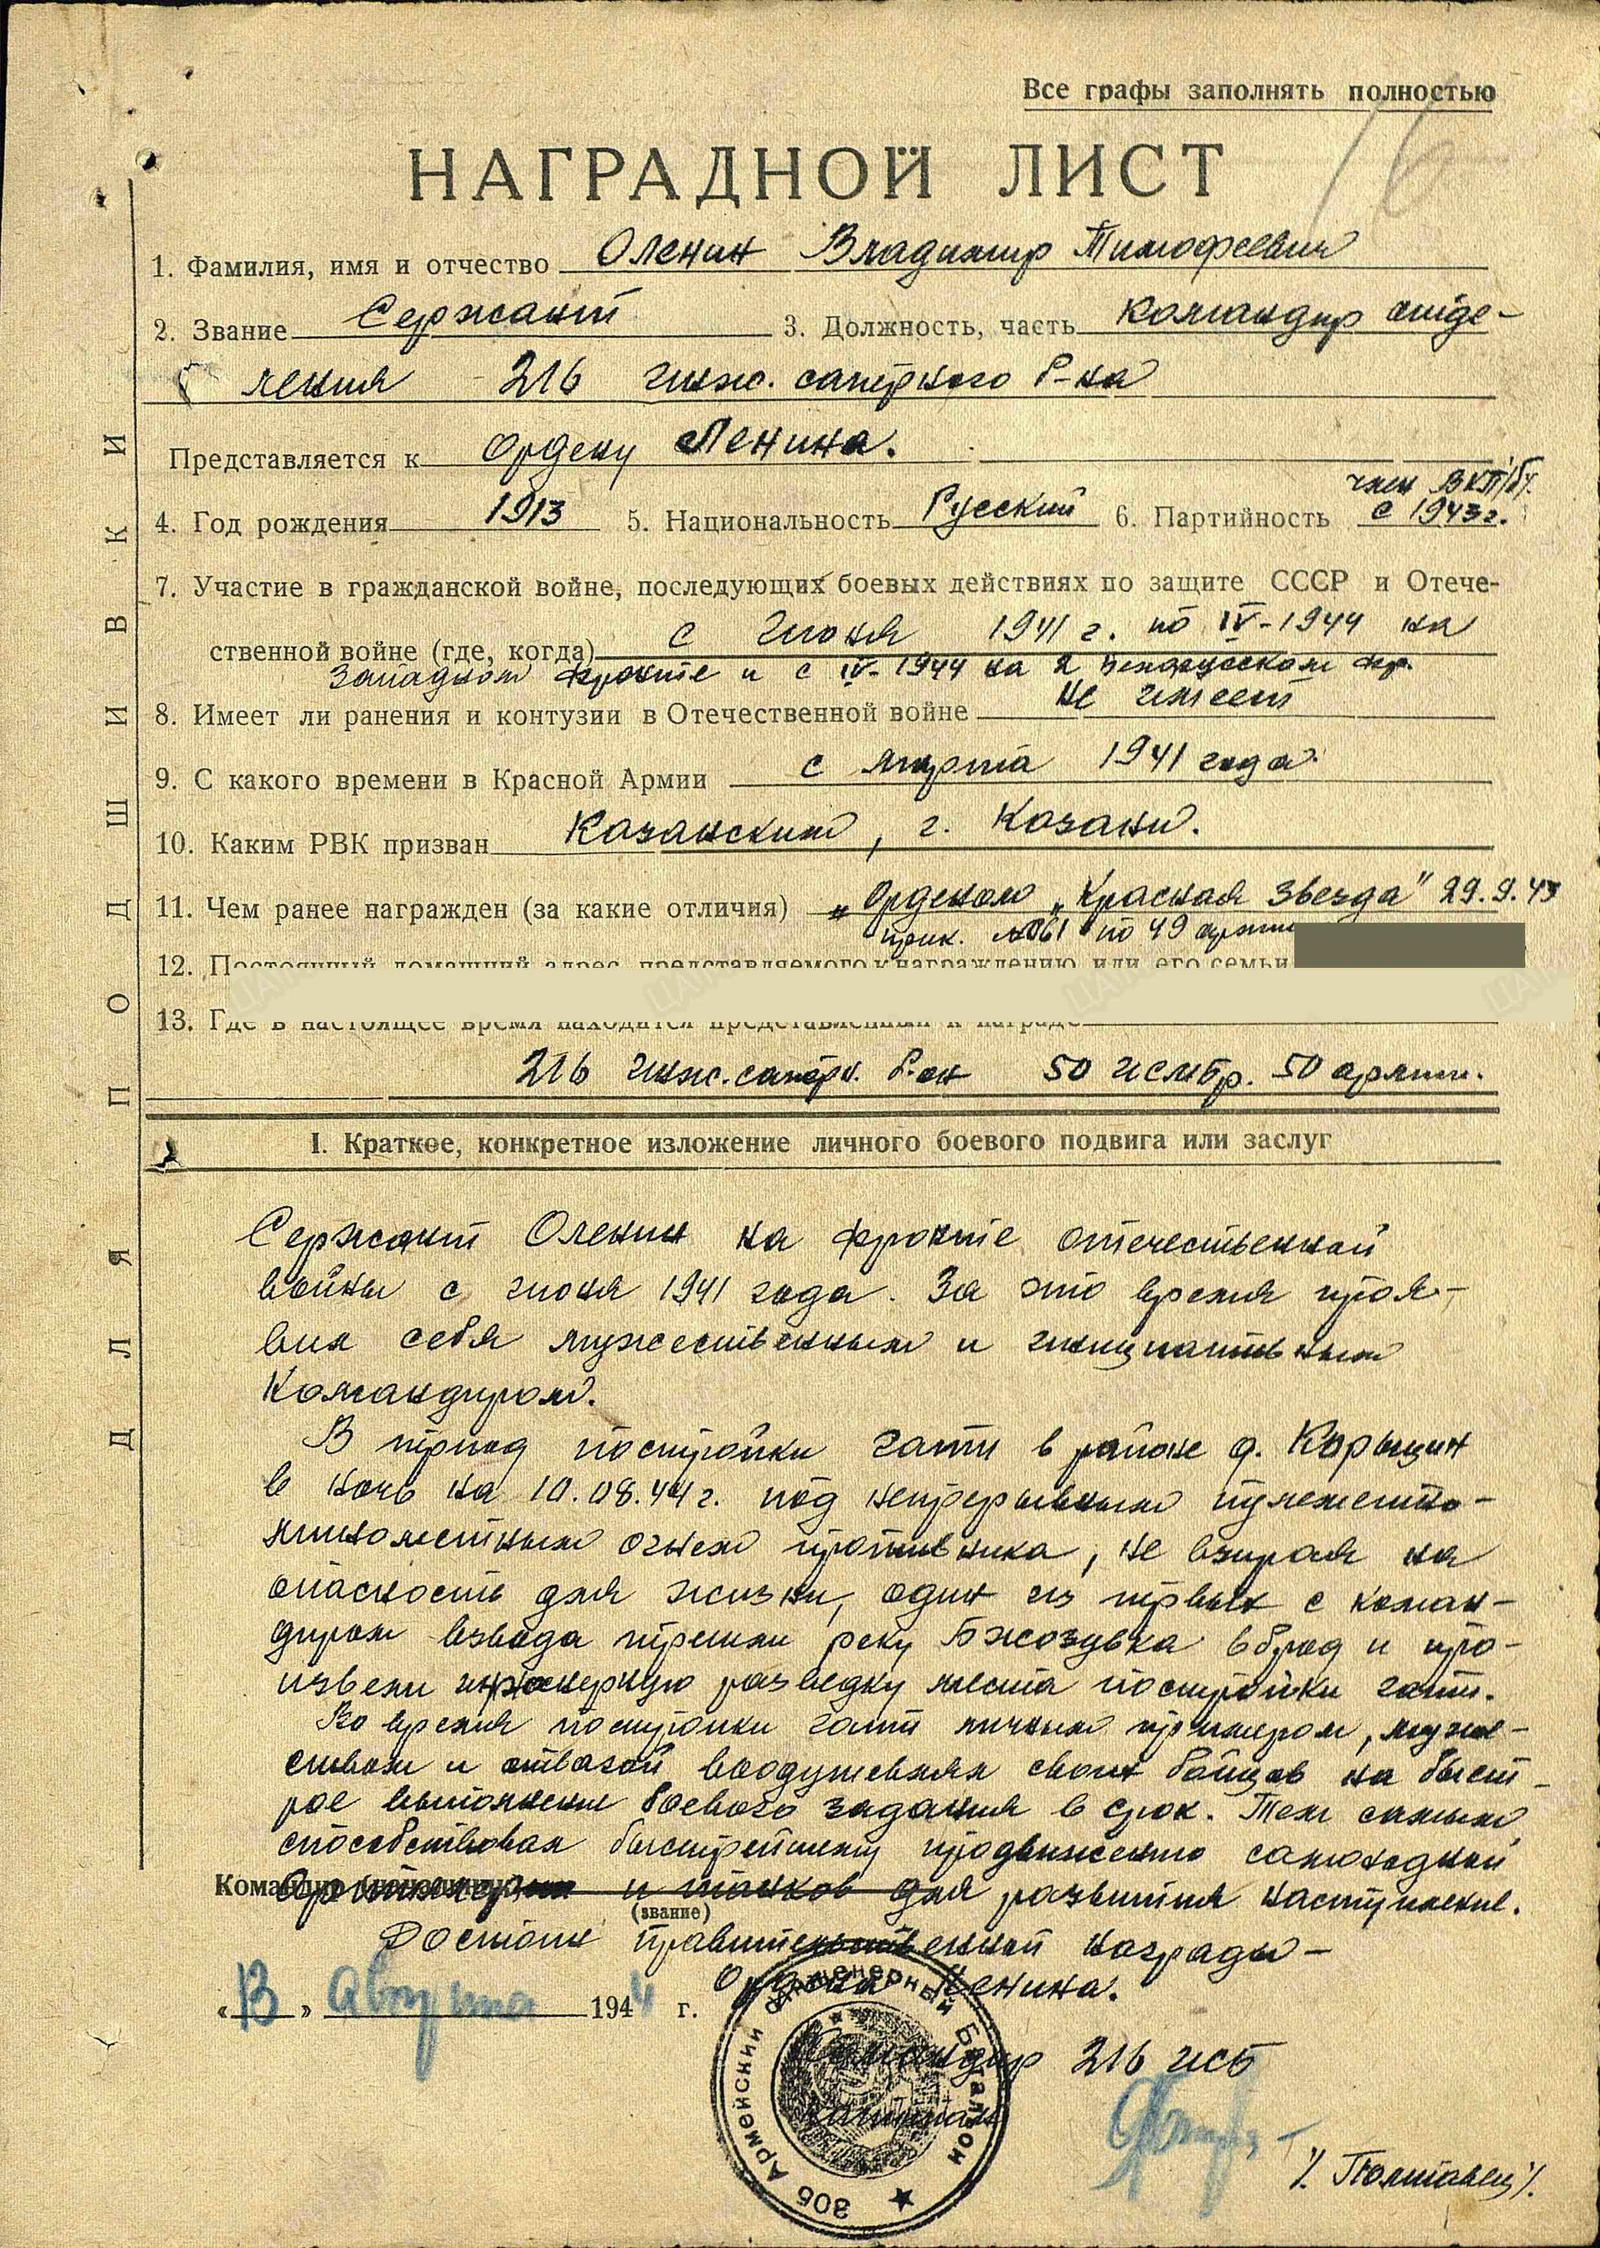 Все графы заполнять полностью
16
НАГРАДНОЙ ЛИСТ
1. Фамилия, имя и отчество Оленин Владимир Тимофеевич
2. Звание Сержант 3. Должность, часть Командир отде-
ления 216 инж. саперного б-на
Представляется к Ордену Ленина.
член ВКП/б/
4. Год рождения 1913 5. Национальность Русский 6. Партийность с 1943 г.
7. Участие в гражданской войне, последующих боевых действиях по защите СССР и Отече-
ственной войне (где, когда) с июня 1941 г. по IV-1944 на
Западном фронте и с IV-1944 на 2 Белорусском фр.
8. Имеет ли ранения и контузии в Отечественной войне не имеет
9. С какого времени в Красной Армии с марта 1941 года.
10. Каким РВК призван Казанским, г. Казани.
11. Чем ранее награжден (за какие отличия) Орденом „Красная Звезда" 29.9.43
прик. №061 по 49 армии
12. Постоянный домашний адрес представляемого к награждению или его семьи
13. Где в настоящее время находится представленный к награде
216 инж. саперн. б-он 50 исмбр. 50 армии.
I. Краткое, конкретное изложение личного боевого подвига или заслуг
Сержант Оленин на фронте отечественной
войны с июня 1941 года. За это время проя-
вил себя мужественным и инициативным
командиром.
В период постройки гати в районе д. Корыцин
в ночь на 10.08.44 г. под непрерывным пулеметно-
минометным огнем противника, не взирая на
опасность для жизни, один из первых с коман-
диром взвода перешли реку Бжозувка вброд и про-
извели инженерную разведку места постройки гати.
Во время постройки гати личным примером, муже-
ством и отвагой воодушевлял своих бойцов на быст-
рое выполнение боевого задания в срок. Тем самым
способствовал быстрейшему продвижению самоходной
артиллерии и танков для развития наступления.
Командир (начальник)
(звание)
Достоин правительственной награды –
Ордена Ленина.
«13» Августа 1944 г.
Командир 216 исб
капитан
/. Полтавец/.
305 Армейский Инженерный Батальон
ДЛЯ ПОДШИВКИ